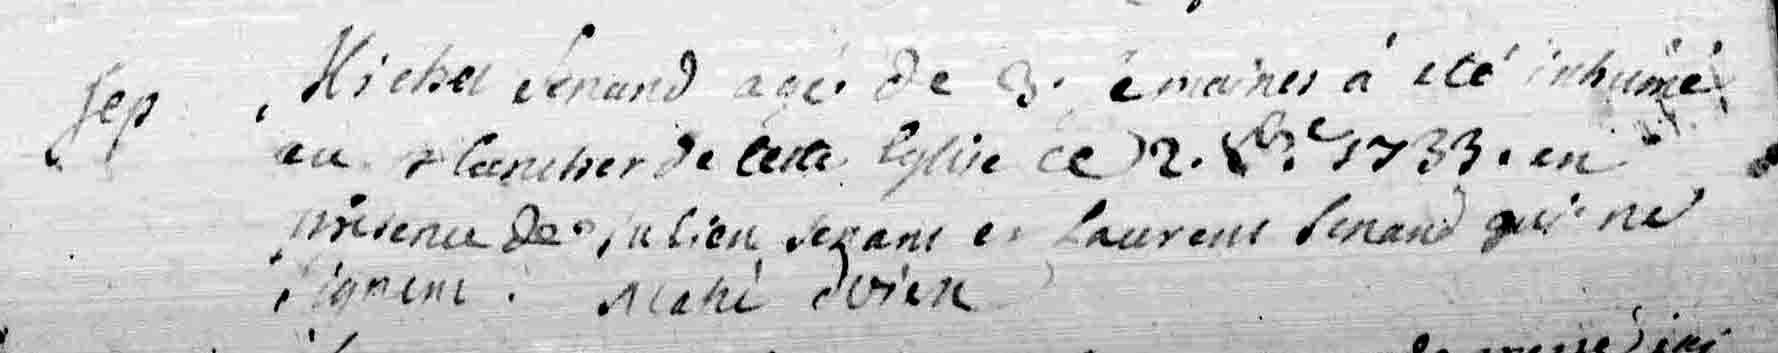 sep Michel Senand agé de 3. semaines a été inhumé
au cimetier de cette Eglise ce 2. 8bre 1733. en
presence de julien senant et Laurent Senand qui ne
signent. Mahé vic